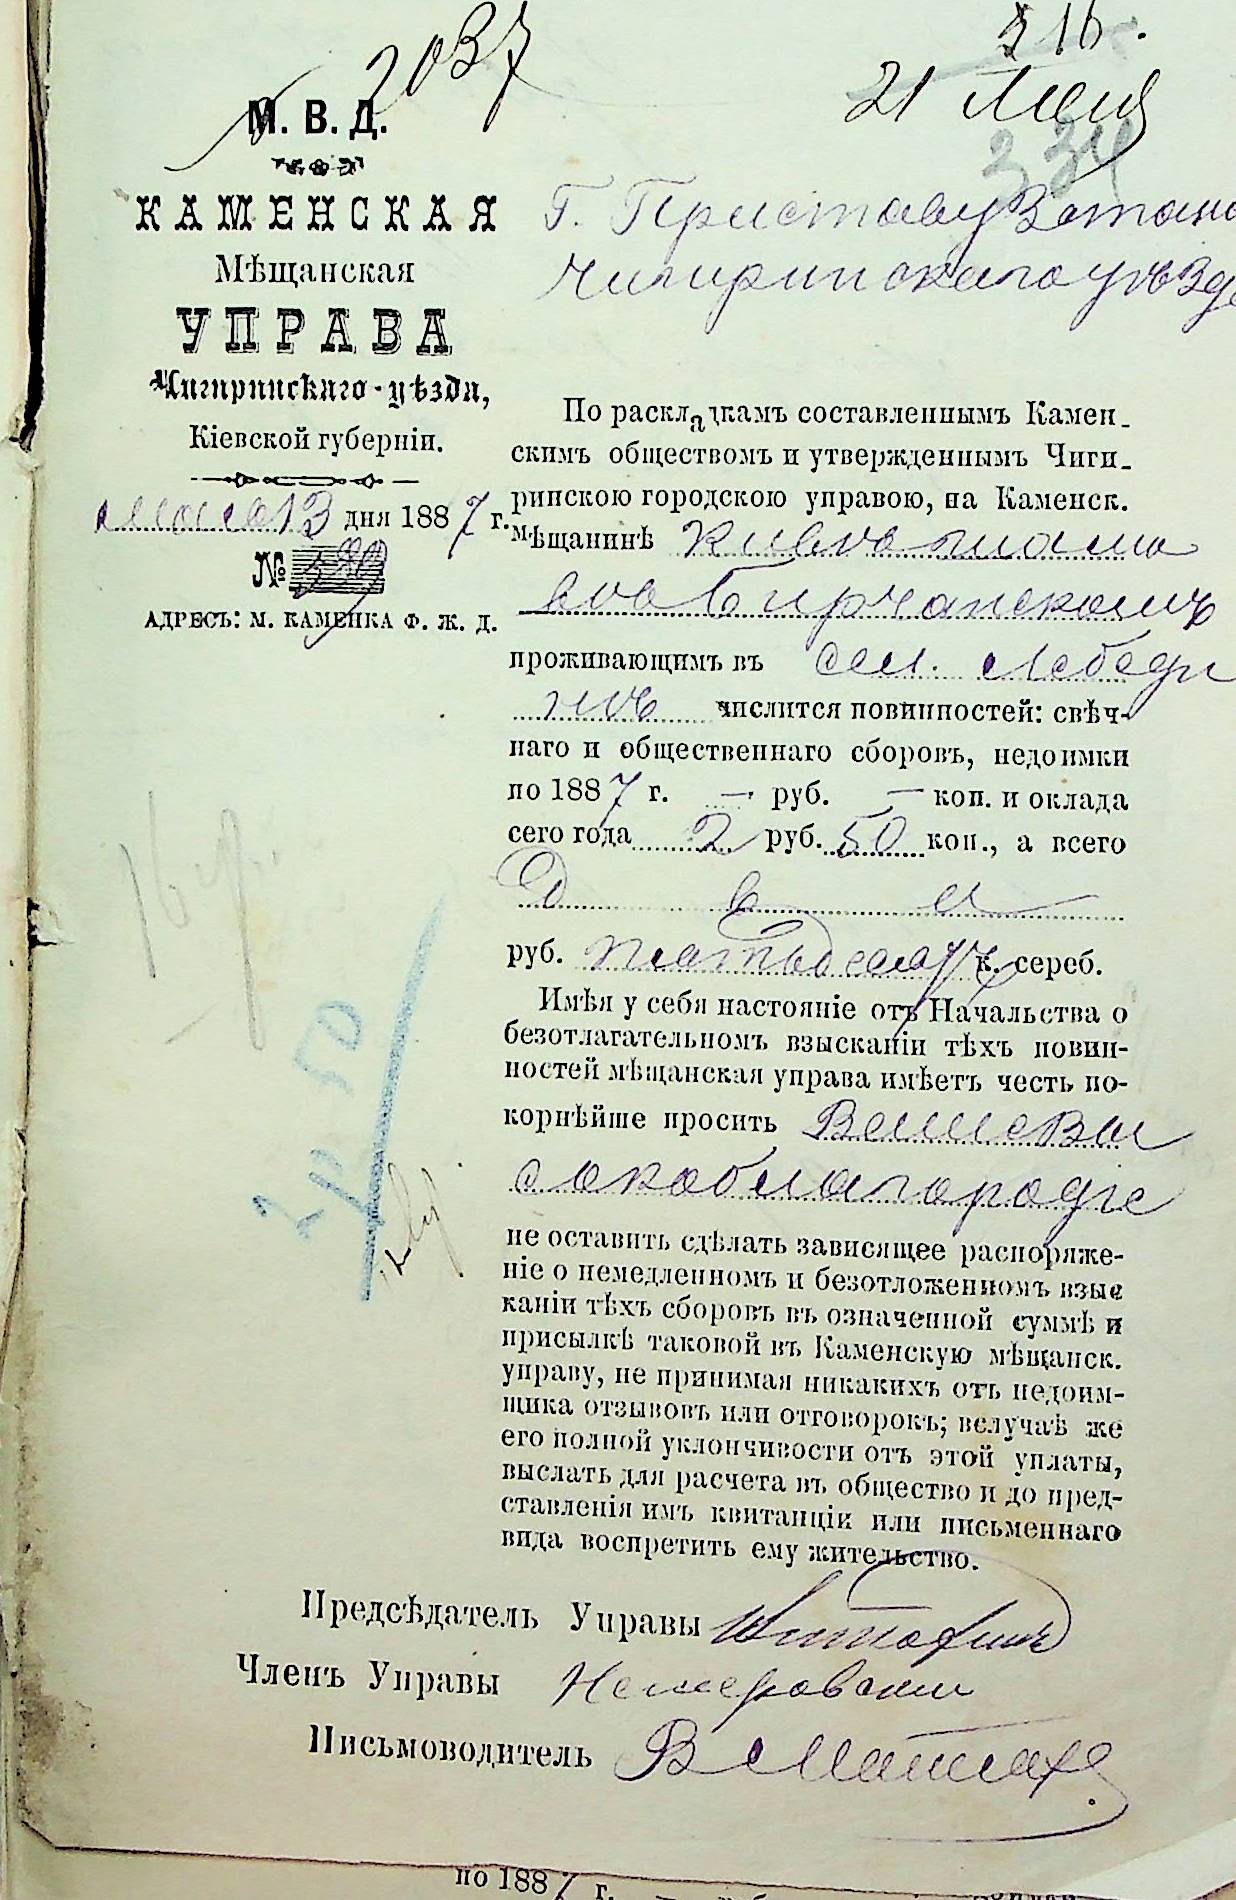 2037
216.
21 Мая
334
М. В. Д.
КАМЕНСКАЯ
Мѣщанская
УПРАВА
Чигиринскаго-уѣзда,
Кіевской губерніи.
13 дня 1887 г.
№
АДРЕСЪ: М. КАМЕНКА Ф. Ж. Д.
Г. Приставу 2 стана
Чигиринскаго уѣзда
По раскладкамъ составленнымъ Камен-
скимъ обществомъ и утвержденнымъ Чиги-
ринскою городскою управою, на Каменск.
мѣщанинѣ
Бирчанскомъ
проживающимъ въ сел. Лебеди
нѣ числится повинностей: свѣч-
наго и общественнаго сборовъ, недоимки
по 1887 г. — руб. — коп. и оклада
сего года 2 руб. 50 коп., а всего
Два
руб. пятьдесятъ к. сереб.
Имѣя у себя настояніе отъ Начальства о
безотлагательномъ взысканіи тѣхъ повин-
ностей мѣщанская управа имѣетъ честь по-
корнѣйше просить Ваше Вы
сокоблагородіе
не оставить сдѣлать зависящее распоряже-
ніе о немедленномъ и безотложенномъ взыс
каніи тѣхъ сборовъ въ означенной суммѣ и
присылкѣ таковой въ Каменскую мѣщанск.
управу, не принимая никакихъ отъ недоим-
щика отзывовъ или отговорокъ; вслучаѣ же
его полной уклончивости отъ этой уплаты,
выслать для расчета въ общество и до пред-
ставленія имъ квитанціи или письменнаго
вида воспретить ему жительство.
2 р 50
Предсѣдатель Управы
Членъ Управы Немеровскій
Письмоводитель В
по 1887 г.